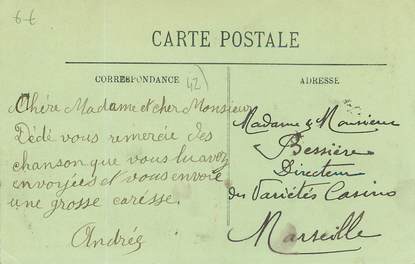 6-€
CARTE POSTALE
CORRESPONDANCE
42
ADRESSE
Chère Madame et cher Monsieur
Dédé vous remercie des
chanson que vous lui avez
envoyées et vous envoie
une grosse caresse.
Andrée
Madame & Monsieur
Bessière
Directeur
des Variétés Casino
Marseille